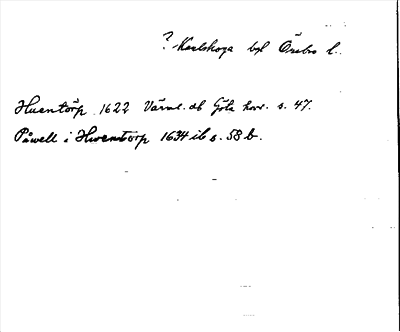 ? Karlskoga bgl Örebro l.
Huentörp 1622 Värml. db Göta hovr. s. 47.
Påwell i Hwentörp 1634 ib s. 58 b.